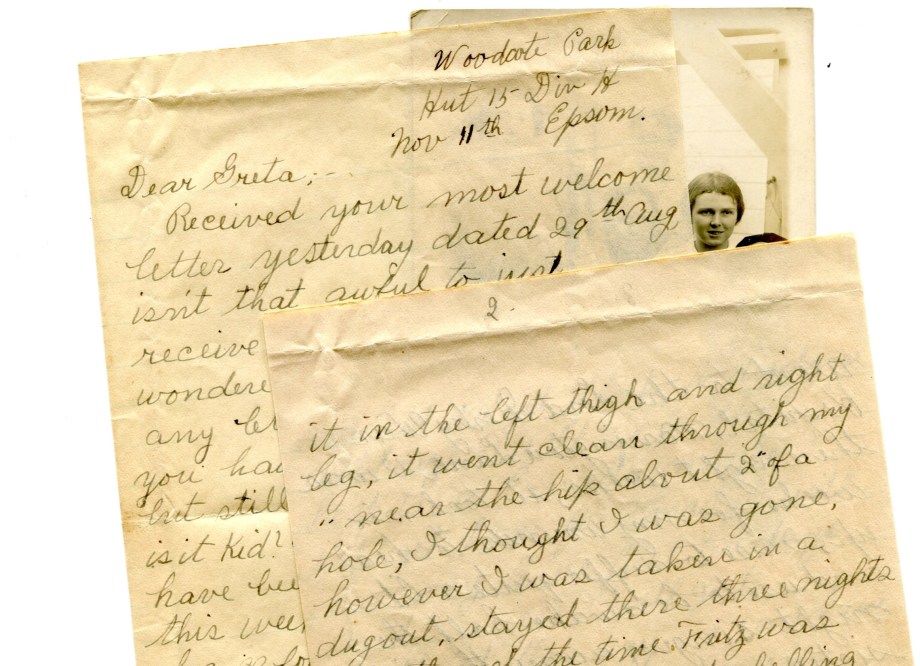 Woodcote Park
Hut 15 Div H
Nov 11th Epsom.
Dear Greta;-
Received your most welcome
letter yesterday dated 29th Aug
isn't that awful to just
receive
wondere
any
you
but still
is it Kid?
have
this
2.
it in the left thigh and right
leg, it went clean through my
" near the hip about 2" of a
hole, I thought I was gone,
however I was taken in a
dugout, stayed there three nights
the time Fritz was
shelling